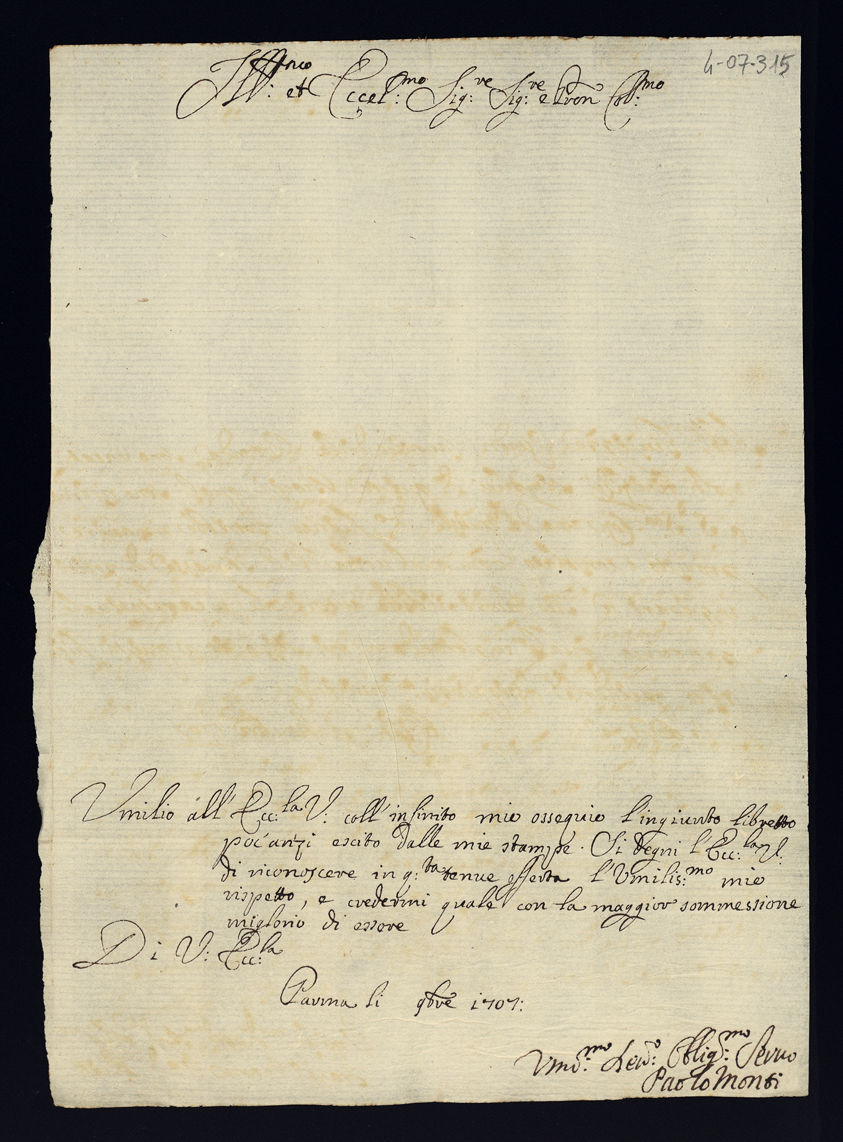 4-07-315
Ill:mo et Eccel:mo Sig:re Sig:re e Pron Col:mo
Umilio all' Ecc:la V: coll' infinito mio ossequio l'ingiunto libretto
poc'anzi escito dalle mie stampe. Si degni l'Ecc:la V:
di riconoscere in q:ta tenue offerta l'Umilis:mo mio
rispetto, e credermi quale con la maggior sommessione
mi glorio di essere
Di V: Ecc:la
Parma li 9bre 1707:
Um:mo Dev:o Oblig:mo Servo
Paolo Monti